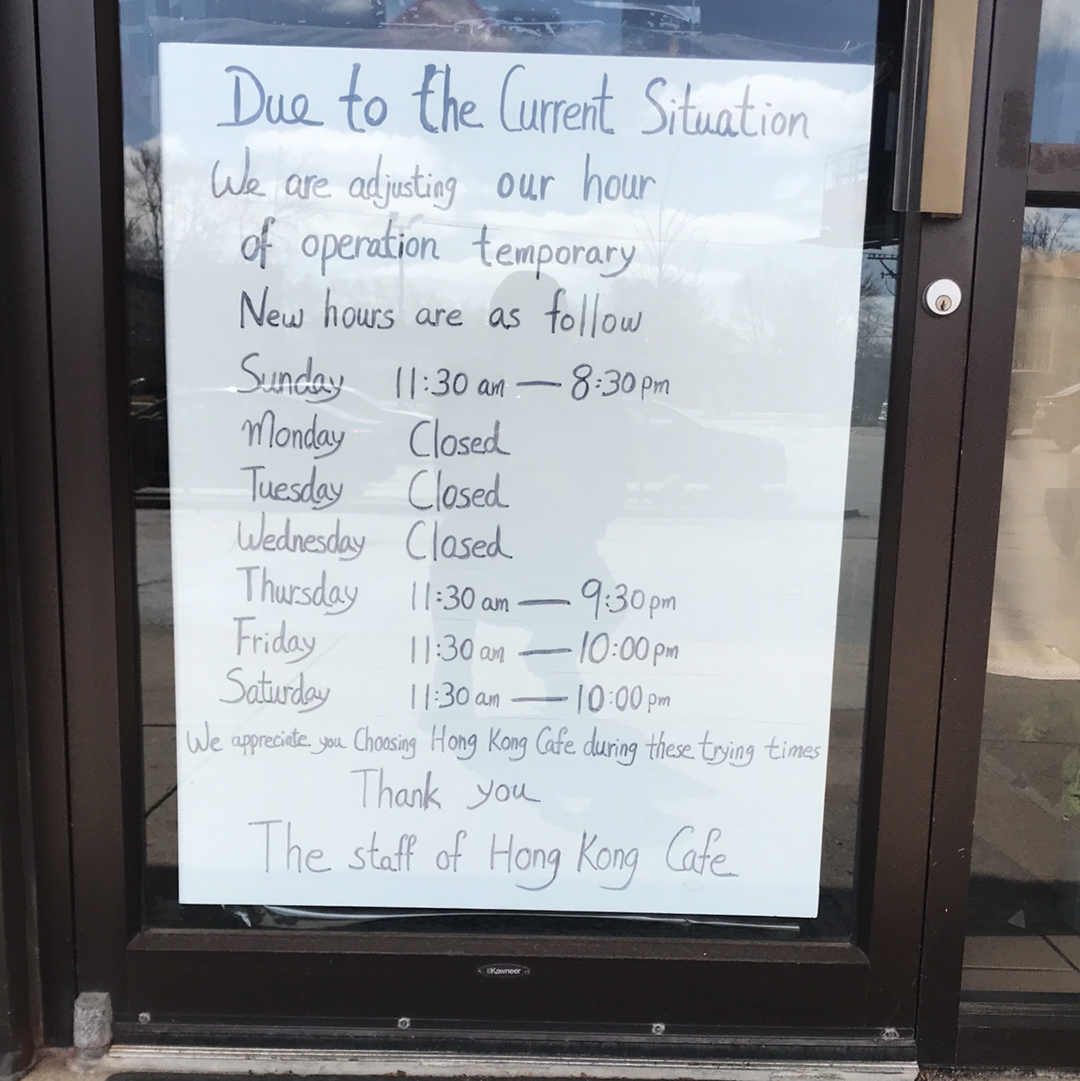 Due to the Current Situation
We are adjusting our hour
of operation temporary
New hours are as follow
Sunday 11:30 am — 8:30 pm
Monday Closed
Tuesday Closed
Wednesday Closed
Thursday 11:30 am — 9:30 pm
Friday 11:30 am — 10:00 pm
Saturday 11:30 am — 10:00 pm
We appreciate you Choosing Hong Kong Cafe during these trying times
Thank you
The staff of Hong Kong Cafe
Kawneer